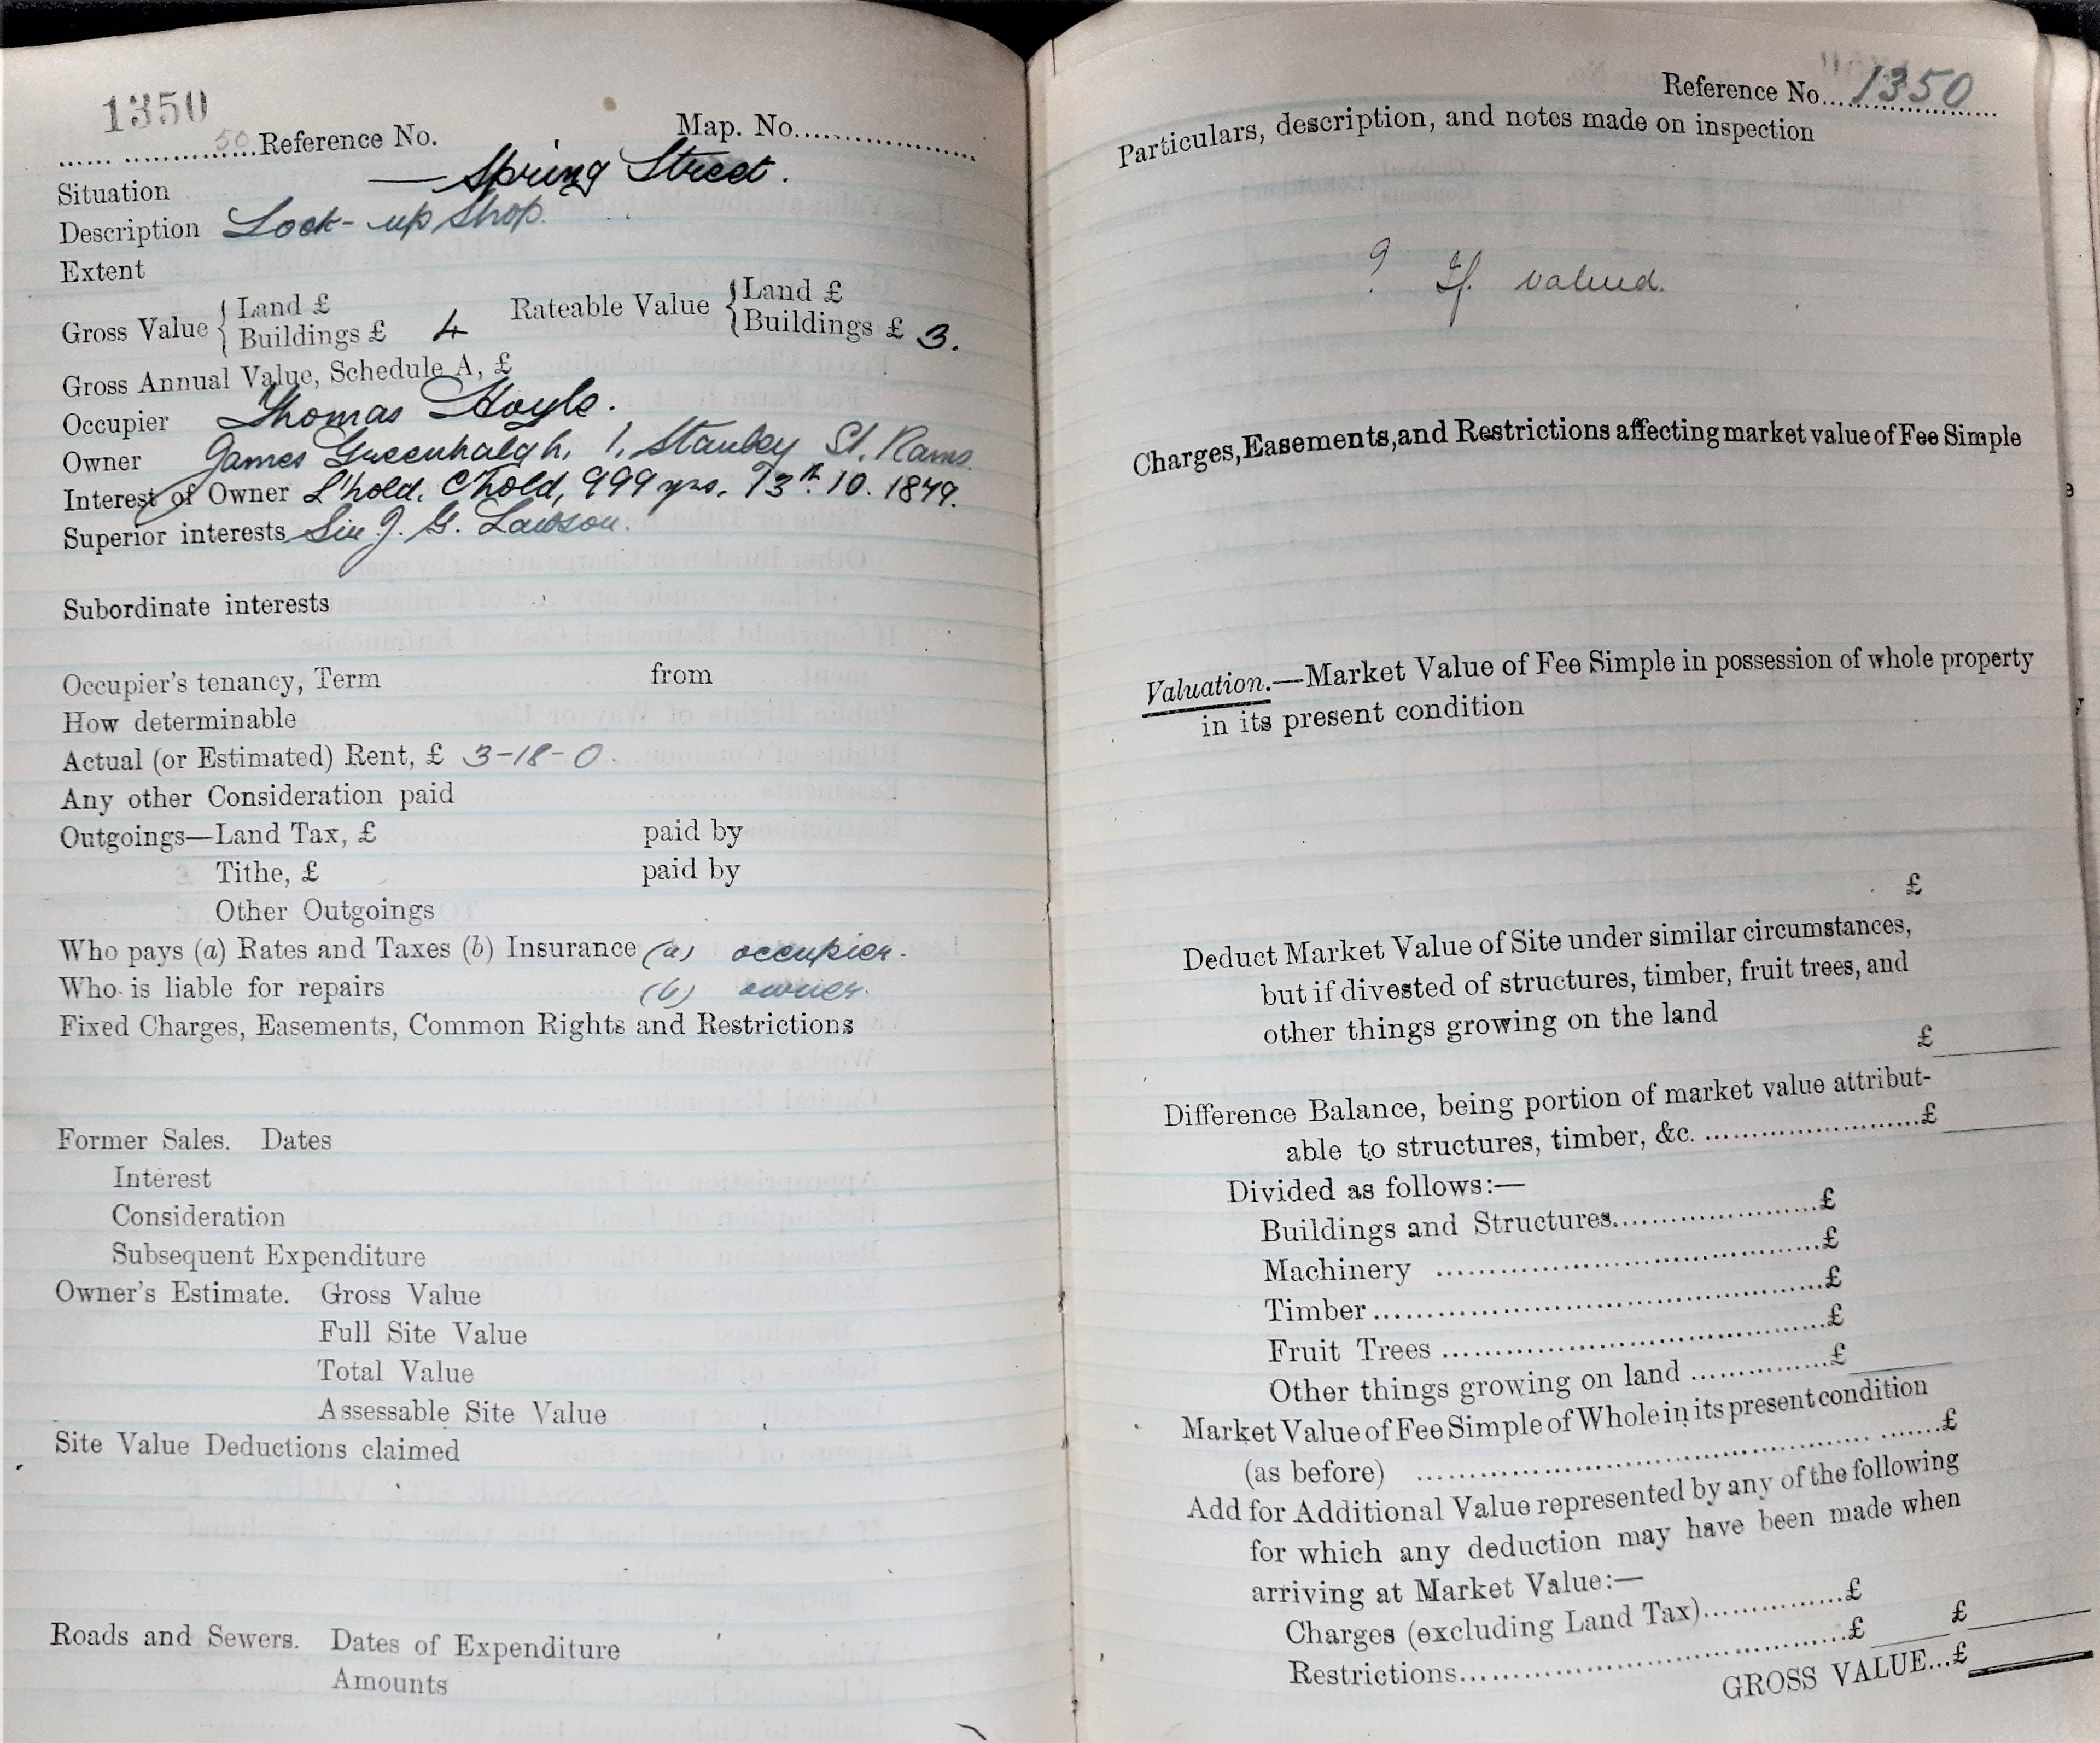 1350
...... ..............50...Reference No. Map. No.................
Situation — Spring Street.
Description Lock-up Shop.
Extent
Gross Value { Land £ Rateable Value { Land £
Buildings £ 4 Buildings £ 3.
Gross Annual Value, Schedule A, £
Occupier Thomas Hoyle.
Owner James Greenhalgh, 1, Stanley St. Rams.
Interest of Owner L'hold. C'hold, 999 yrs. 13th. 10. 1849.
Superior interests Sir J. G. Lawson.
Subordinate interests
Occupier's tenancy, Term from
How determinable
Actual (or Estimated) Rent, £ 3-18-0.
Any other Consideration paid
Outgoings—Land Tax, £ paid by
Tithe, £ paid by
Other Outgoings
Who pays (a) Rates and Taxes (b) Insurance (a) occupier.
Who is liable for repairs (b) owner.
Fixed Charges, Easements, Common Rights and Restrictions
Former Sales. Dates
Interest
Consideration
Subsequent Expenditure
Owner's Estimate. Gross Value
Full Site Value
Total Value
Assessable Site Value
Site Value Deductions claimed
Roads and Sewers. Dates of Expenditure
Amounts
Reference No....1350...
Particulars, description, and notes made on inspection
? If valued.
Charges, Easements, and Restrictions affecting market value of Fee Simple
Valuation.—Market Value of Fee Simple in possession of whole property
in its present condition
£
Deduct Market Value of Site under similar circumstances,
but if divested of structures, timber, fruit trees, and
other things growing on the land
£
Difference Balance, being portion of market value attribut-
able to structures, timber, &c. ..........................£
Divided as follows:—
Buildings and Structures......................£
Machinery ..........................................£
Timber................................................£
Fruit Trees ..........................................£
Other things growing on land ...............£
Market Value of Fee Simple of Whole in its present condition
(as before) ................................................. .......£
Add for Additional Value represented by any of the following
for which any deduction may have been made when
arriving at Market Value:—
Charges (excluding Land Tax)...............£
Restrictions.........................................£ £
GROSS VALUE...£